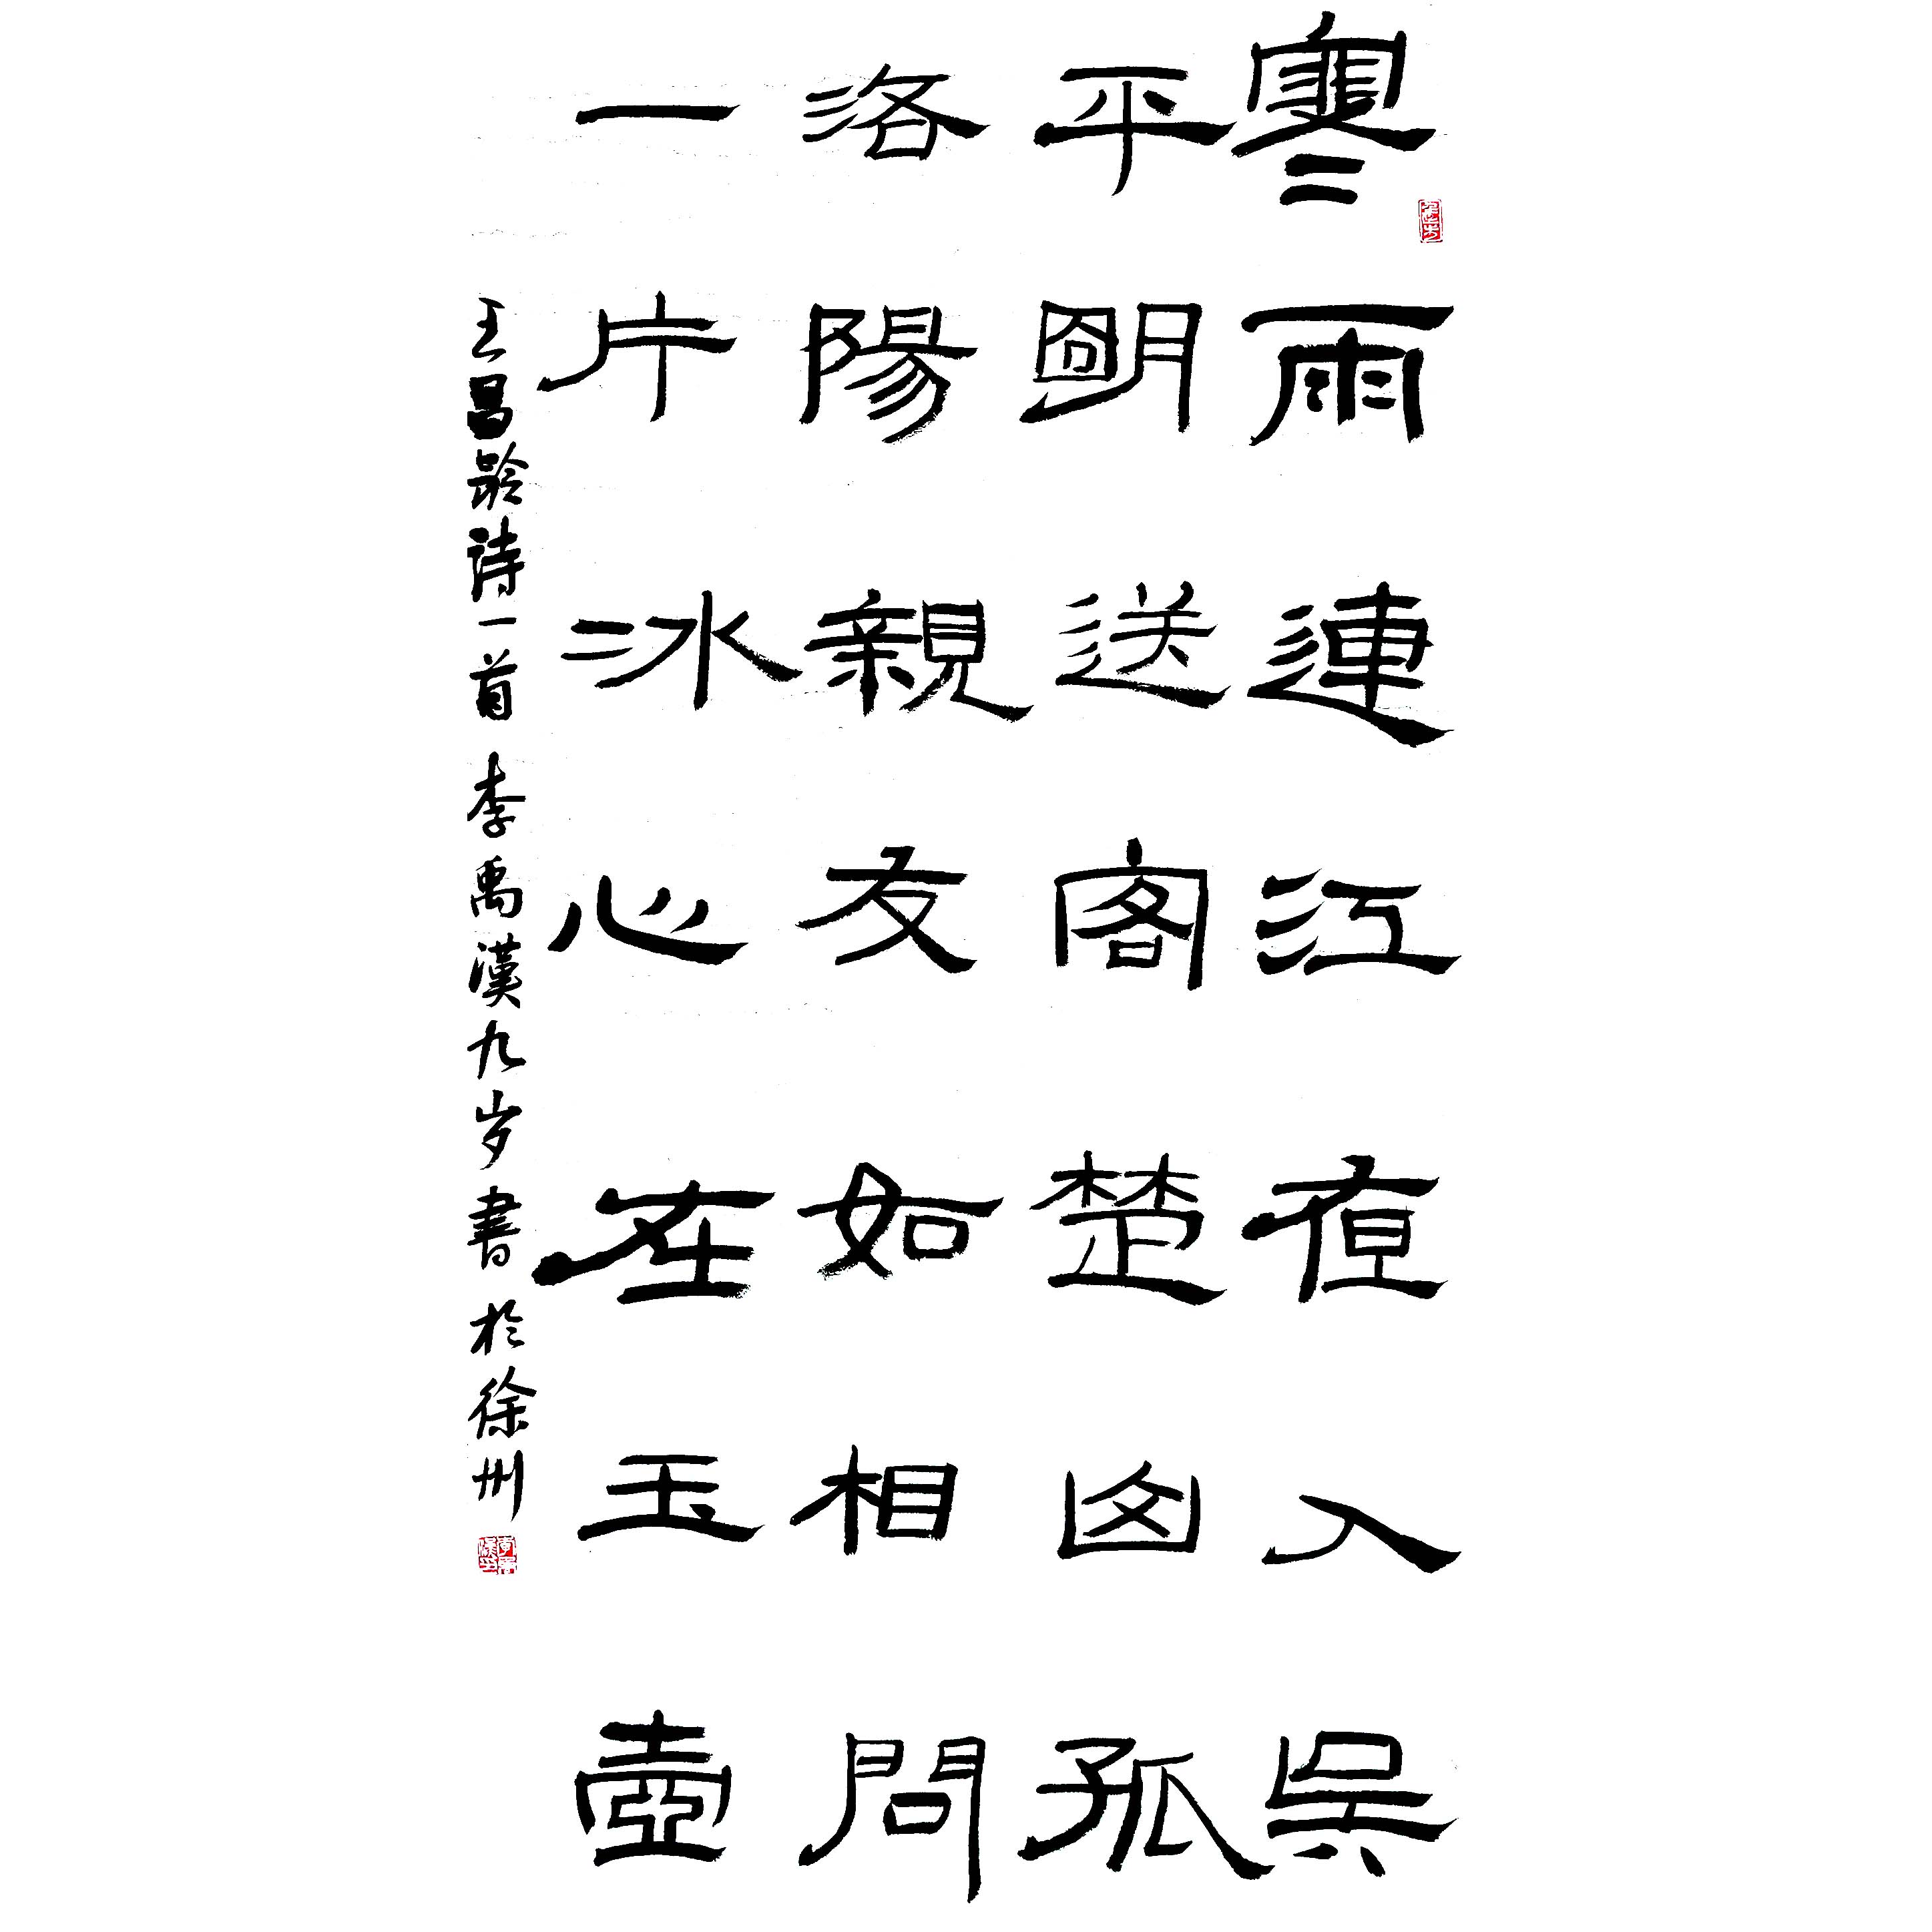 寒雨連江夜入吳
平明送客楚山孤
洛陽親友如相問
一片冰心在玉壺
王昌龄诗一首 李禹漢九岁書於徐州